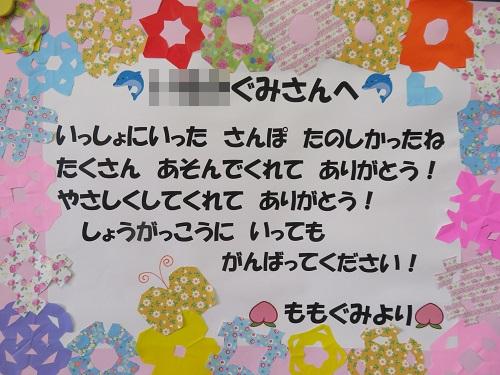 ぐみさんへ
いっしょにいった さんぽ たのしかったね
たくさん あそんでくれて ありがとう！
やさしくしてくれて ありがとう！
しょうがっこうに いっても
がんばってください！
ももぐみより